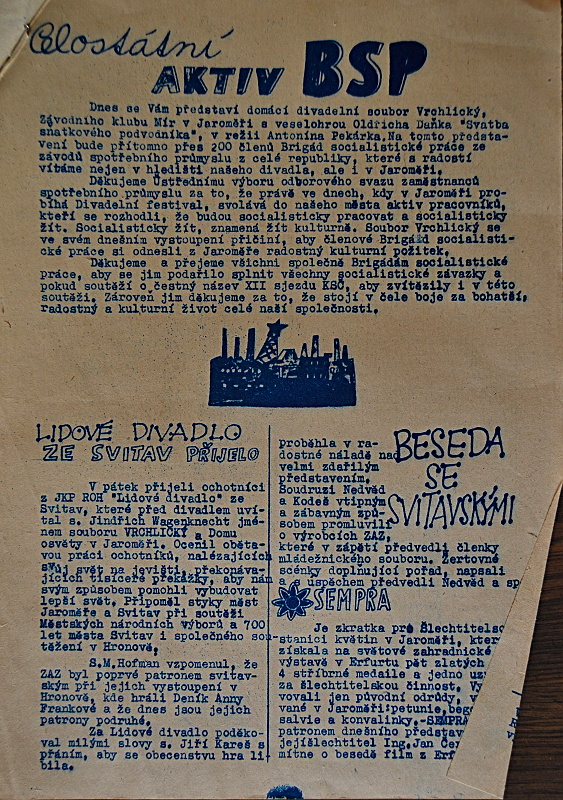 Celostátní
AKTIV BSP
Dnes se Vám představí domácí divadelní soubor Vrchlický,
Závodního klubu Mír v Jaroměři s veselohrou Oldřicha Daňka "Svatba
sňatkového podvodníka", v režii Antonína Pekárka. Na tomto předsta-
vení bude přítomno přes 200 členů Brigád socialistické práce ze
závodů spotřebního průmyslu z celé republiky, které s radostí
vítáme nejen v hledišti našeho divadla, ale i v Jaroměři.
Děkujeme Ústřednímu výboru odborového svazu zaměstnanců
spotřebního průmyslu za to, že právě ve dnech, kdy v Jaroměři pro-
bíhá Divadelní festival, svolává do našeho města aktiv pracovníků,
kteří se rozhodli, že budou socialisticky pracovat a socialisticky
žít. Socialisticky žít, znamená žít kulturně. Soubor Vrchlický se
ve svém dnešním vystoupení přičiní, aby členové Brigád socialisti-
cké práce si odnesli z Jaroměře radostný kulturní požitek.
Děkujeme a přejeme všichni společně Brigádám socialistické
práce, aby se jim podařilo splnit všechny socialistické závazky a
pokud soutěží o čestný název XII sjezdu KSČ, aby zvítězily i v této
soutěži. Zároveň jim děkujeme za to, že stojí v čele boje za bohatší,
radostný a kulturní život celé naší společnosti.
LIDOVÉ DIVADLO
ZE SVITAV PŘIJELO
V pátek přijeli ochotníci
z JKP ROH "Lidové divadlo" ze
Svitav, které před divadlem uví-
tal s. Jindřich Wagenknecht jmé-
nem souboru VRCHLICKÝ a Domu
osvěty v Jaroměři. Ocenil oběta-
vou práci ochotníků, nalézajících
svůj svět na jevišti, překonáva-
jících tisíceré překážky, aby nám
svým způsobem pomohli vybudovat
lepší svět. Připoměl styky měst
Jaroměře a Svitav při soutěži
Městských národních výborů a 700
let města Svitav i společného sou-
těžení v Hronově.
S.M.Hofman vzpomenul, že
ZAZ byl poprvé patronem svitav-
ským při jejich vystoupení v
Hronově, kde hráli Deník Anny
Frankové a že dnes jsou jejich
patrony podruhé.
Za Lidové divadlo poděko-
val milými slovy s. Jiří Kareš s
přáním, aby se obecenstvu hra lí-
bila.
BESEDA
SE
SVITAVSKÝMI
proběhla v ra-
dostné náladě na
velmi zdařilým
představením.
Soudruzi Nedvěd
a Kodeš vtipným
a zábavným způ-
sobem promluvili
o výrobcích ZAZ,
které v zápětí předvedli členky
mládežnického souboru. Žertovné
scénky doplňující pořad, napsali
a s úspěchem předvedli Nedvěd a sp
SEMPRA
Je zkratka pro Šlechtitelsc
stanici květin v Jaroměři, kter
získala na světové zahradnické
výstavě v Erfurtu pět zlatých
4 stříbrné medaile a jedno uz
za šlechtitelskou činnost. Vy
vovali jen původní odrůdy, v
vané v Jaroměři:petunie,beg
salvie a konvalinky.-SEMPRA
patronem dnešního představ
jejíšlechtitel Ing.Jan Čer
mítne o besedě film z Erf